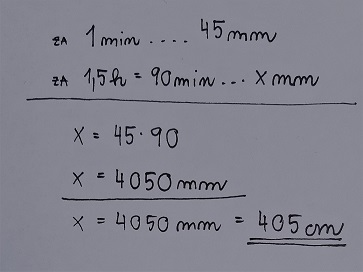 ZA 1 min .... 45 mm
ZA 1,5 h = 90 min ... x mm
x = 45 · 90
x = 4050 mm
x = 4050 mm = 405 cm